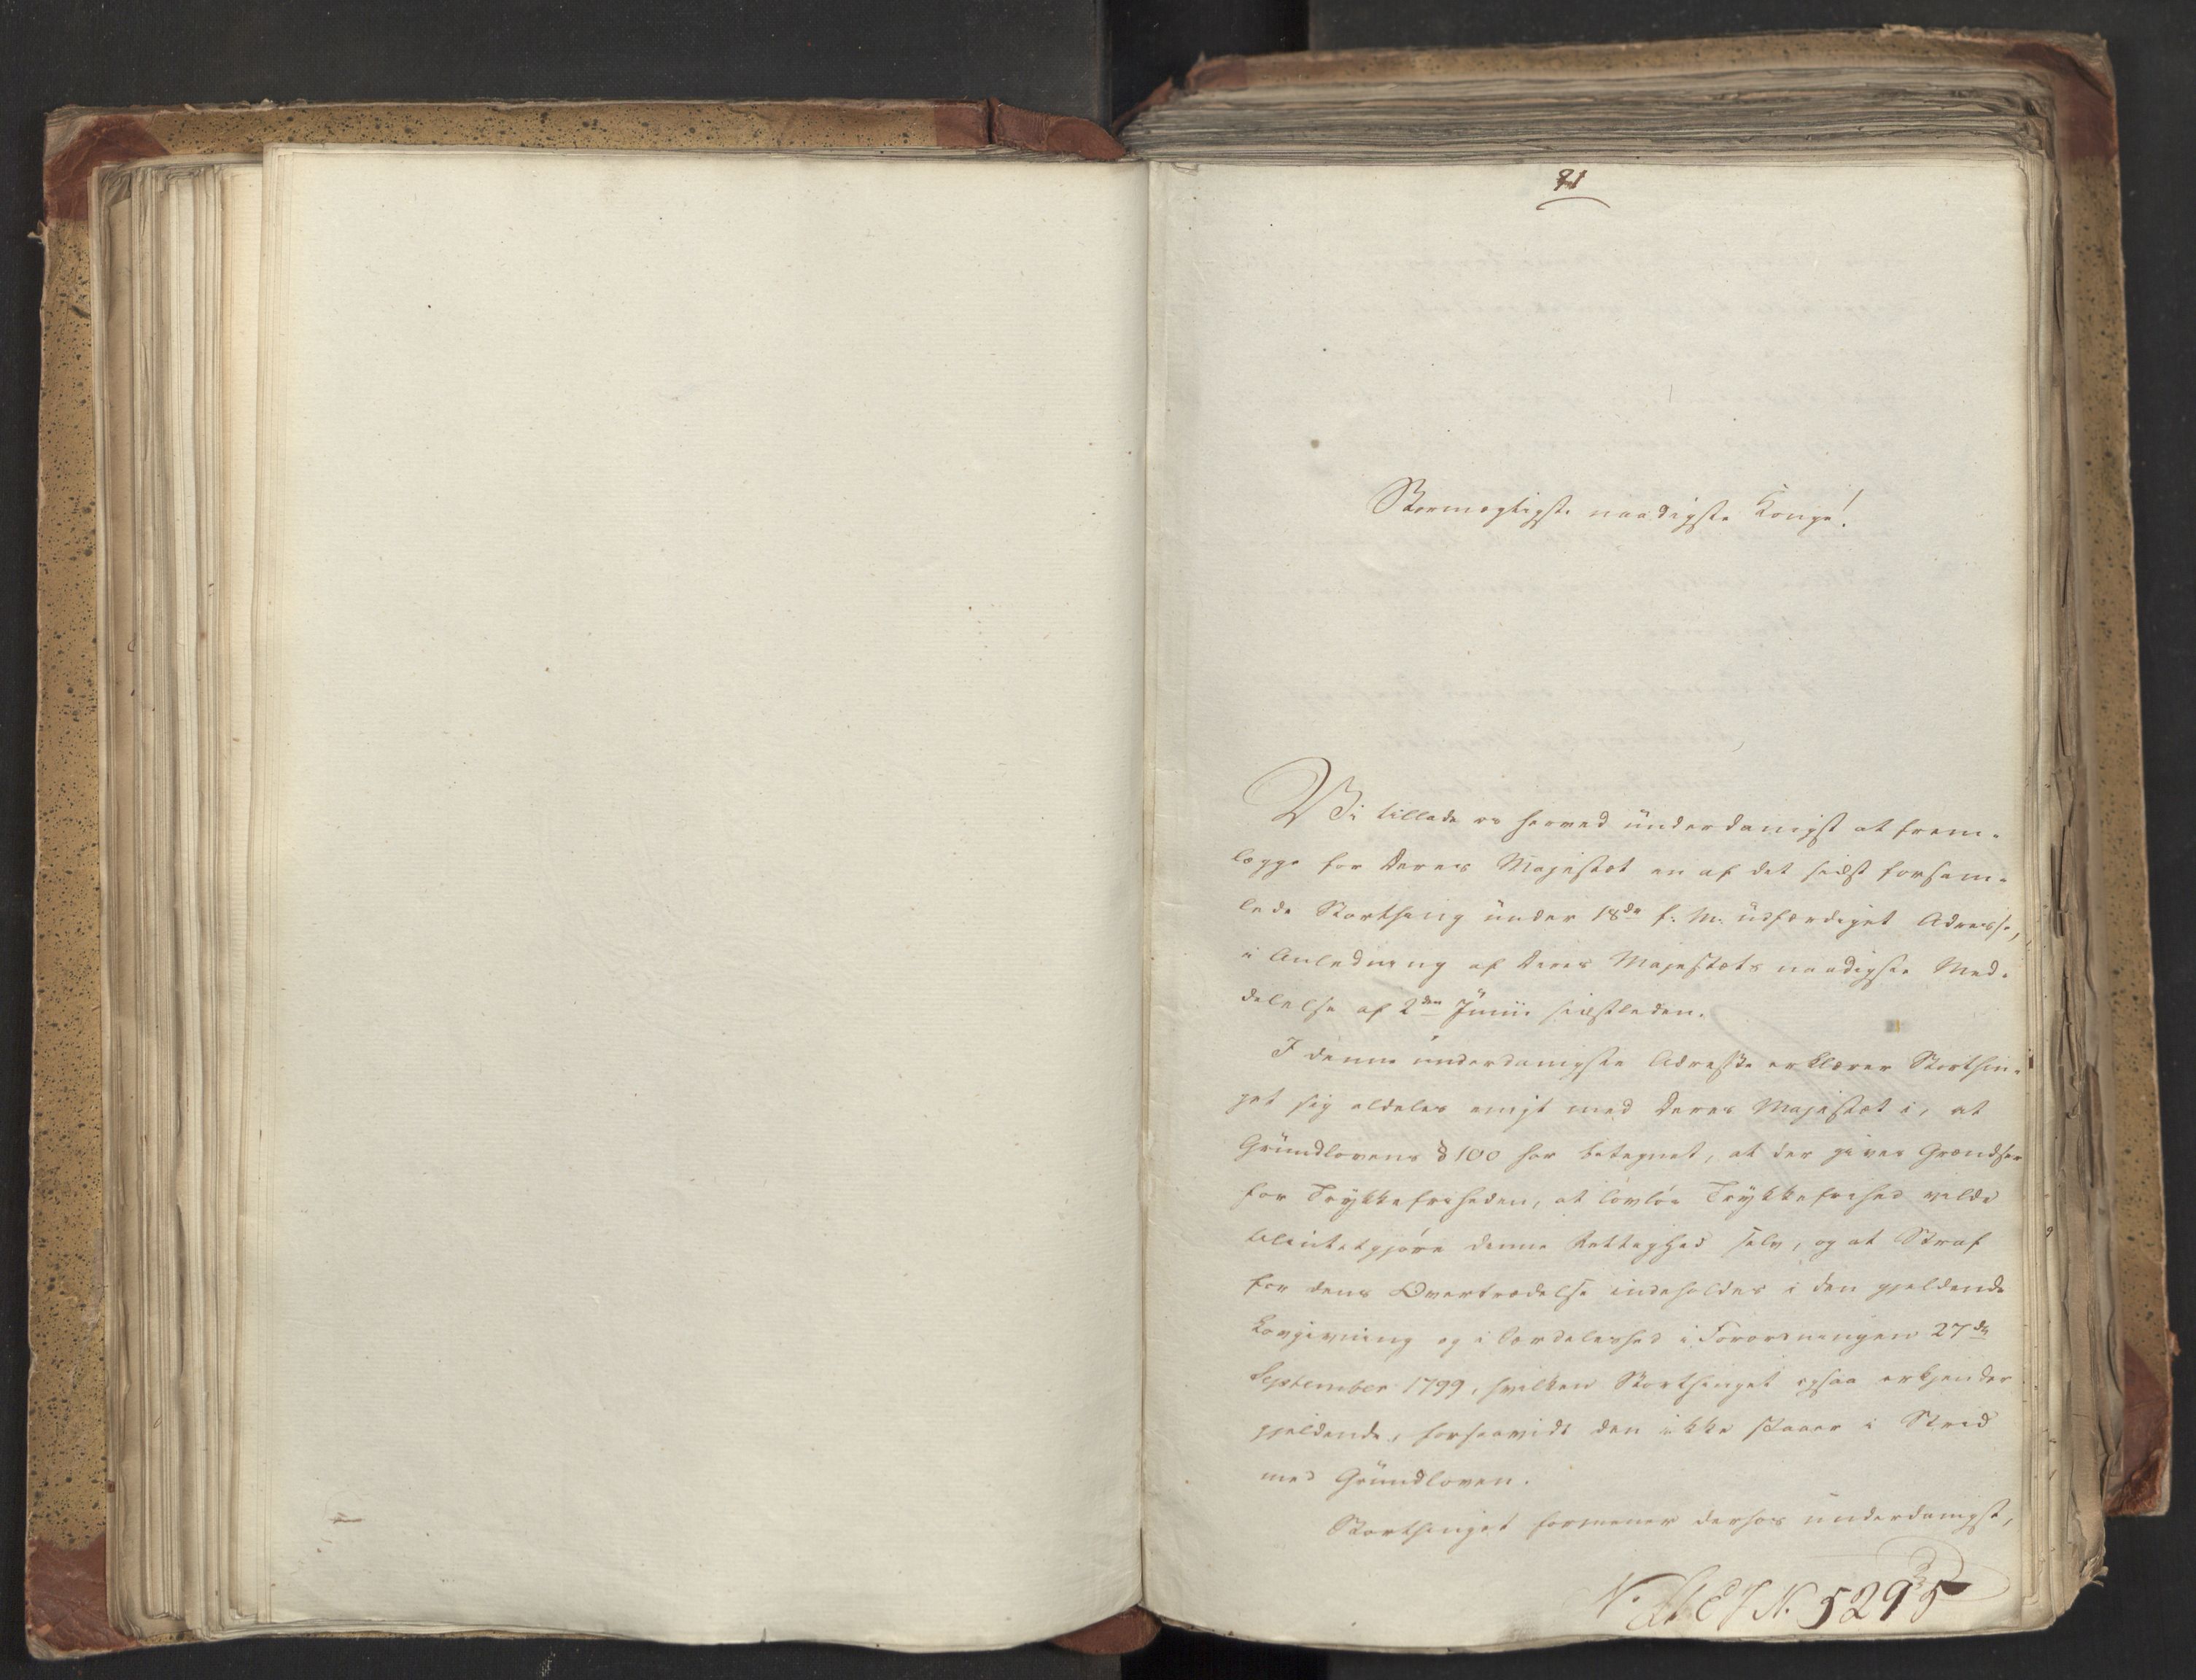 21
Stormægtigste naadigste Konge!
Vi tillade os herved ünderdanigst at frem-
lægge for Deres Majestæt en af det sidst forsam-
lede Storthing ünder 18de f. M. üdfærdiget Adresse,
i Anledning af Deres Majestæts naadigste Med-
delelse af 2den Jünii sidstleden.
I denne ünderdanigste Adresse erklærer Storthin-
get sig aldeles enigt med Deres Majestæt i, at
Gründlovens § 100 har betegnet, at der gives Grændser
for Trykkefriheden, at lovløs Trykkefrihed vilde
tilintetgjøre denne Rettighed selv, og at Straf
for dens Overtrædelse indeholdes i den gjeldende
Lovgivning og i Særdeleshed i Forordningen 27de
September 1799, hvilken Storthinget ogsaa erkjender
gjeldende, forsaavidt den ikke staaer i Strid
med Gründloven.
Storthinget formener derhos ünderdanigst,
N. 5295